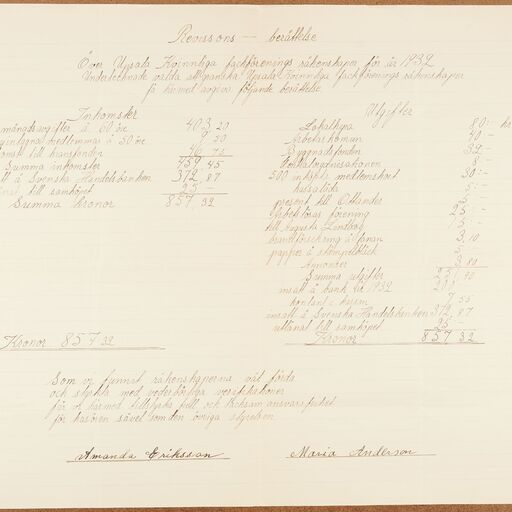 Revissons — berättelse
Över Upsala Kvinnliga fackförenings räkenskaper för år 1932
Undertecknade valda att granska Upsala Kvinnliga fackförenings räkenskaper
få härmed avgiva följande berättelse
Inkomster
månadsavgifter á 60 öre 403 20
medlemmar á 50 öre 9 50
till fanfonden 46 75
Summa inkomster 459 45
å Svenska Handelsbanken 372 87
till samköpet 25 —
Summa kronor 857 32
Kronor 857 32
Utgifter
Lokalhyra 80:-
40 —
Byggnadsfonden 32 —
8 —
500 inköpta medlemskort 30:-
5:-
present till Ötlander 5 —
förening 25 —
till Augusta Lindberg 15 —
brandförsäkring å fanan 3,10
papper å stämpelbleck
Annonser 80
Summa utgifter 90
insatt å bank år 1932
kontant i kassan 55
insatt å Svenska Handelsbanken 372,87
till samköpet 25
Kronor 857 32
Som vi funnit räkenskaperna väl förda
och styrkta med vederbörliga verifikationer
få vi härmed tillstyrka full och tacksam ansvarsfrihet
för kasören såväl som den övriga styrelsen
Amanda Eriksson
Maria Anderson